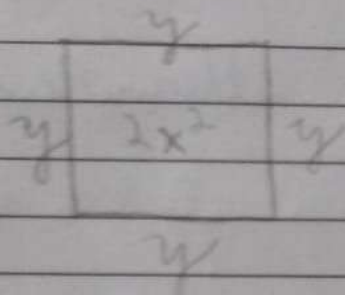 y
y 2x² y
y